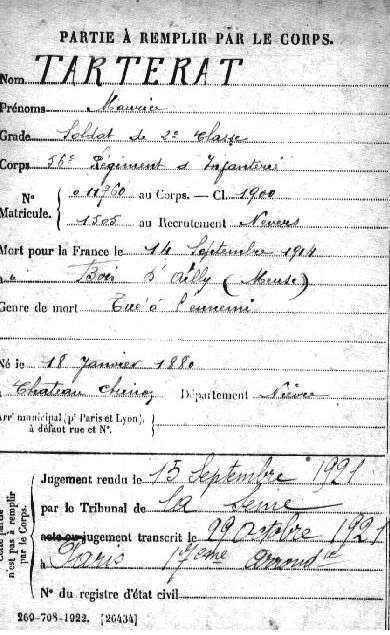 PARTIE À REMPLIR PAR LE CORPS.
Nom TARTERAT
Prénoms Maurice
Grade Soldat de 2e Classe
Corps 56e Régiment d'Infanterie
No Matricule. 011960 au Corps. — Cl. 1900
1505 au Recrutement Nevers
Mort pour la France le 14 Septembre 1914
à Bois d'Ailly (Meuse)
Genre de mort Tué à l'ennemi
Né le 18 Janvier 1880
Chateau Chinon Département Nièvre
Arr' municipal (pr Paris et Lyon),
à défaut rue et No.
Cette partie n'est pas à remplir par le Corps.
Jugement rendu le 15 Septembre 1921
par le Tribunal de la Seine
acte ou jugement transcrit le 29 Octobre 1921
à Paris 17eme arrondt
No du registre d'état civil
269-708-1922. [26434]